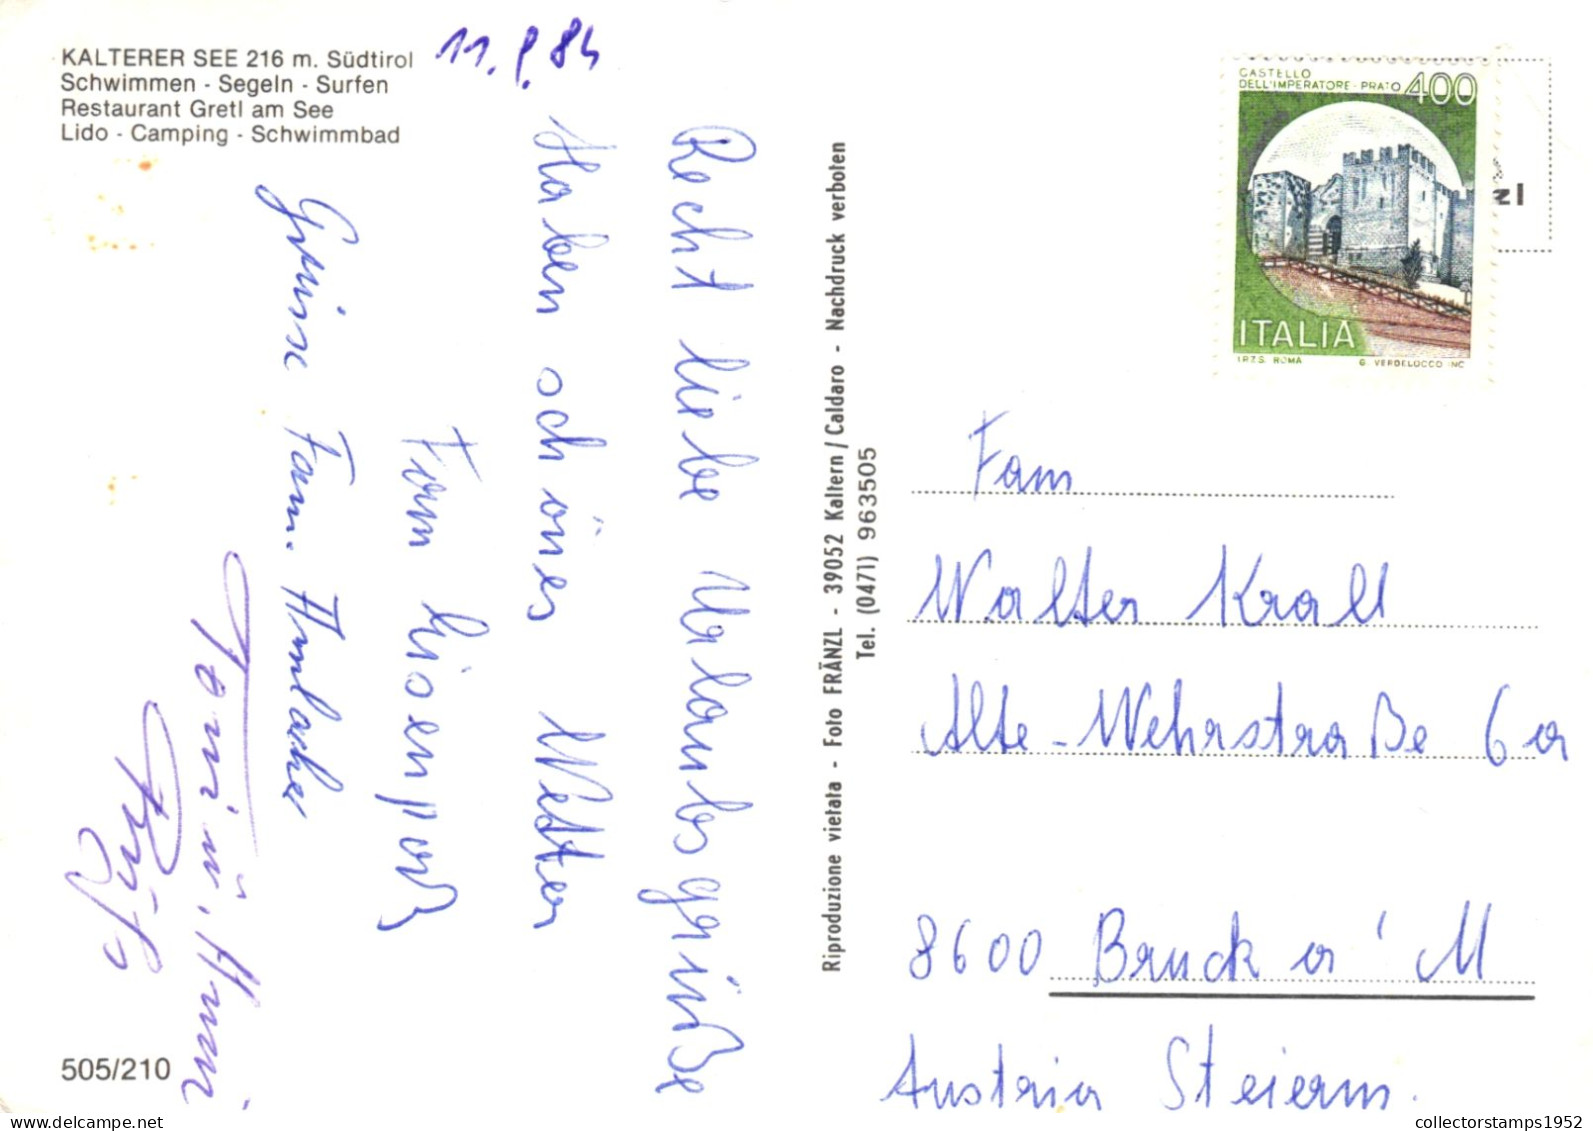 KALTERER SEE 216 m. Südtirol
Schwimmen - Segeln - Surfen
Restaurant Gretl am See
Lido - Camping - Schwimmbad
11. 8. 84
Recht liebe Urlaubsgrüße
Haben schönes Wetter
Fam
Grüsse Fam.
Toni u. Anni
505/210
Riproduzione vietata - Foto FRÄNZL - 39052 Kaltern / Caldaro - Nachdruck verboten
Tel. (0471) 963505
CASTELLO
DELL'IMPERATORE - PRATO 400
ITALIA
I.P.Z.S. ROMA G. VERDELOCCO INC.
zl
Fam
Walter Krall
Alte-Wehrstraße 6a
8600 Bruck a' M
Austria Steierm.
collectorstamps1952